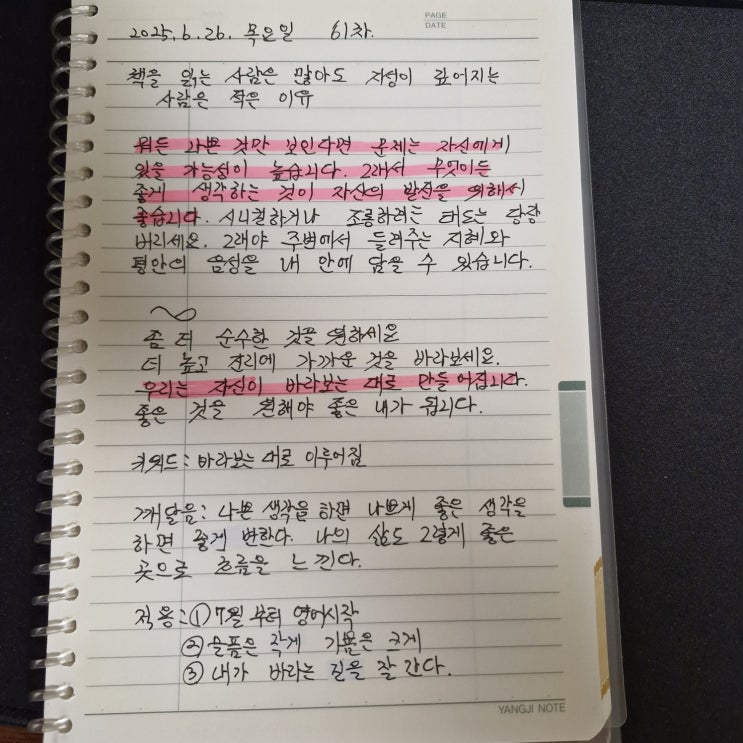 PAGE
DATE
2025.6.26. 목요일 61차.
책을 읽는 사람은 많아도 지성이 깊어지는
사람은 적은 이유
뭐든 나쁜 것만 보인다면 문제는 자신에게
있을 가능성이 높습니다. 그래서 무엇이든
좋게 생각하는 것이 자산의 발전을 위해서
좋습니다. 시니컬하거나 조롱하려는 태도는 당장
버리세요. 그래야 주변에서 들려주는 지혜와
평안의 음성을 내 안에 담을 수 있습니다.
좀 더 순수한 것을 원하세요
더 높고 진리에 가까운 것을 바라보세요.
우리는 자신이 바라보는 대로 만들어집니다.
좋은 것을 원해야 좋은 내가 됩니다.
키워드 : 바라보는 대로 이루어짐
깨달음 : 나쁜 생각을 하면 나쁘게 좋은 생각을
하면 좋게 변한다. 나의 삶도 그렇게 좋은
곳으로 흐름을 느낀다.
적용 : ① 7월 부터 영어시작
② 슬픔은 작게 기쁨은 크게
③ 내가 바라는 길을 잘 간다.
YANGJI NOTE